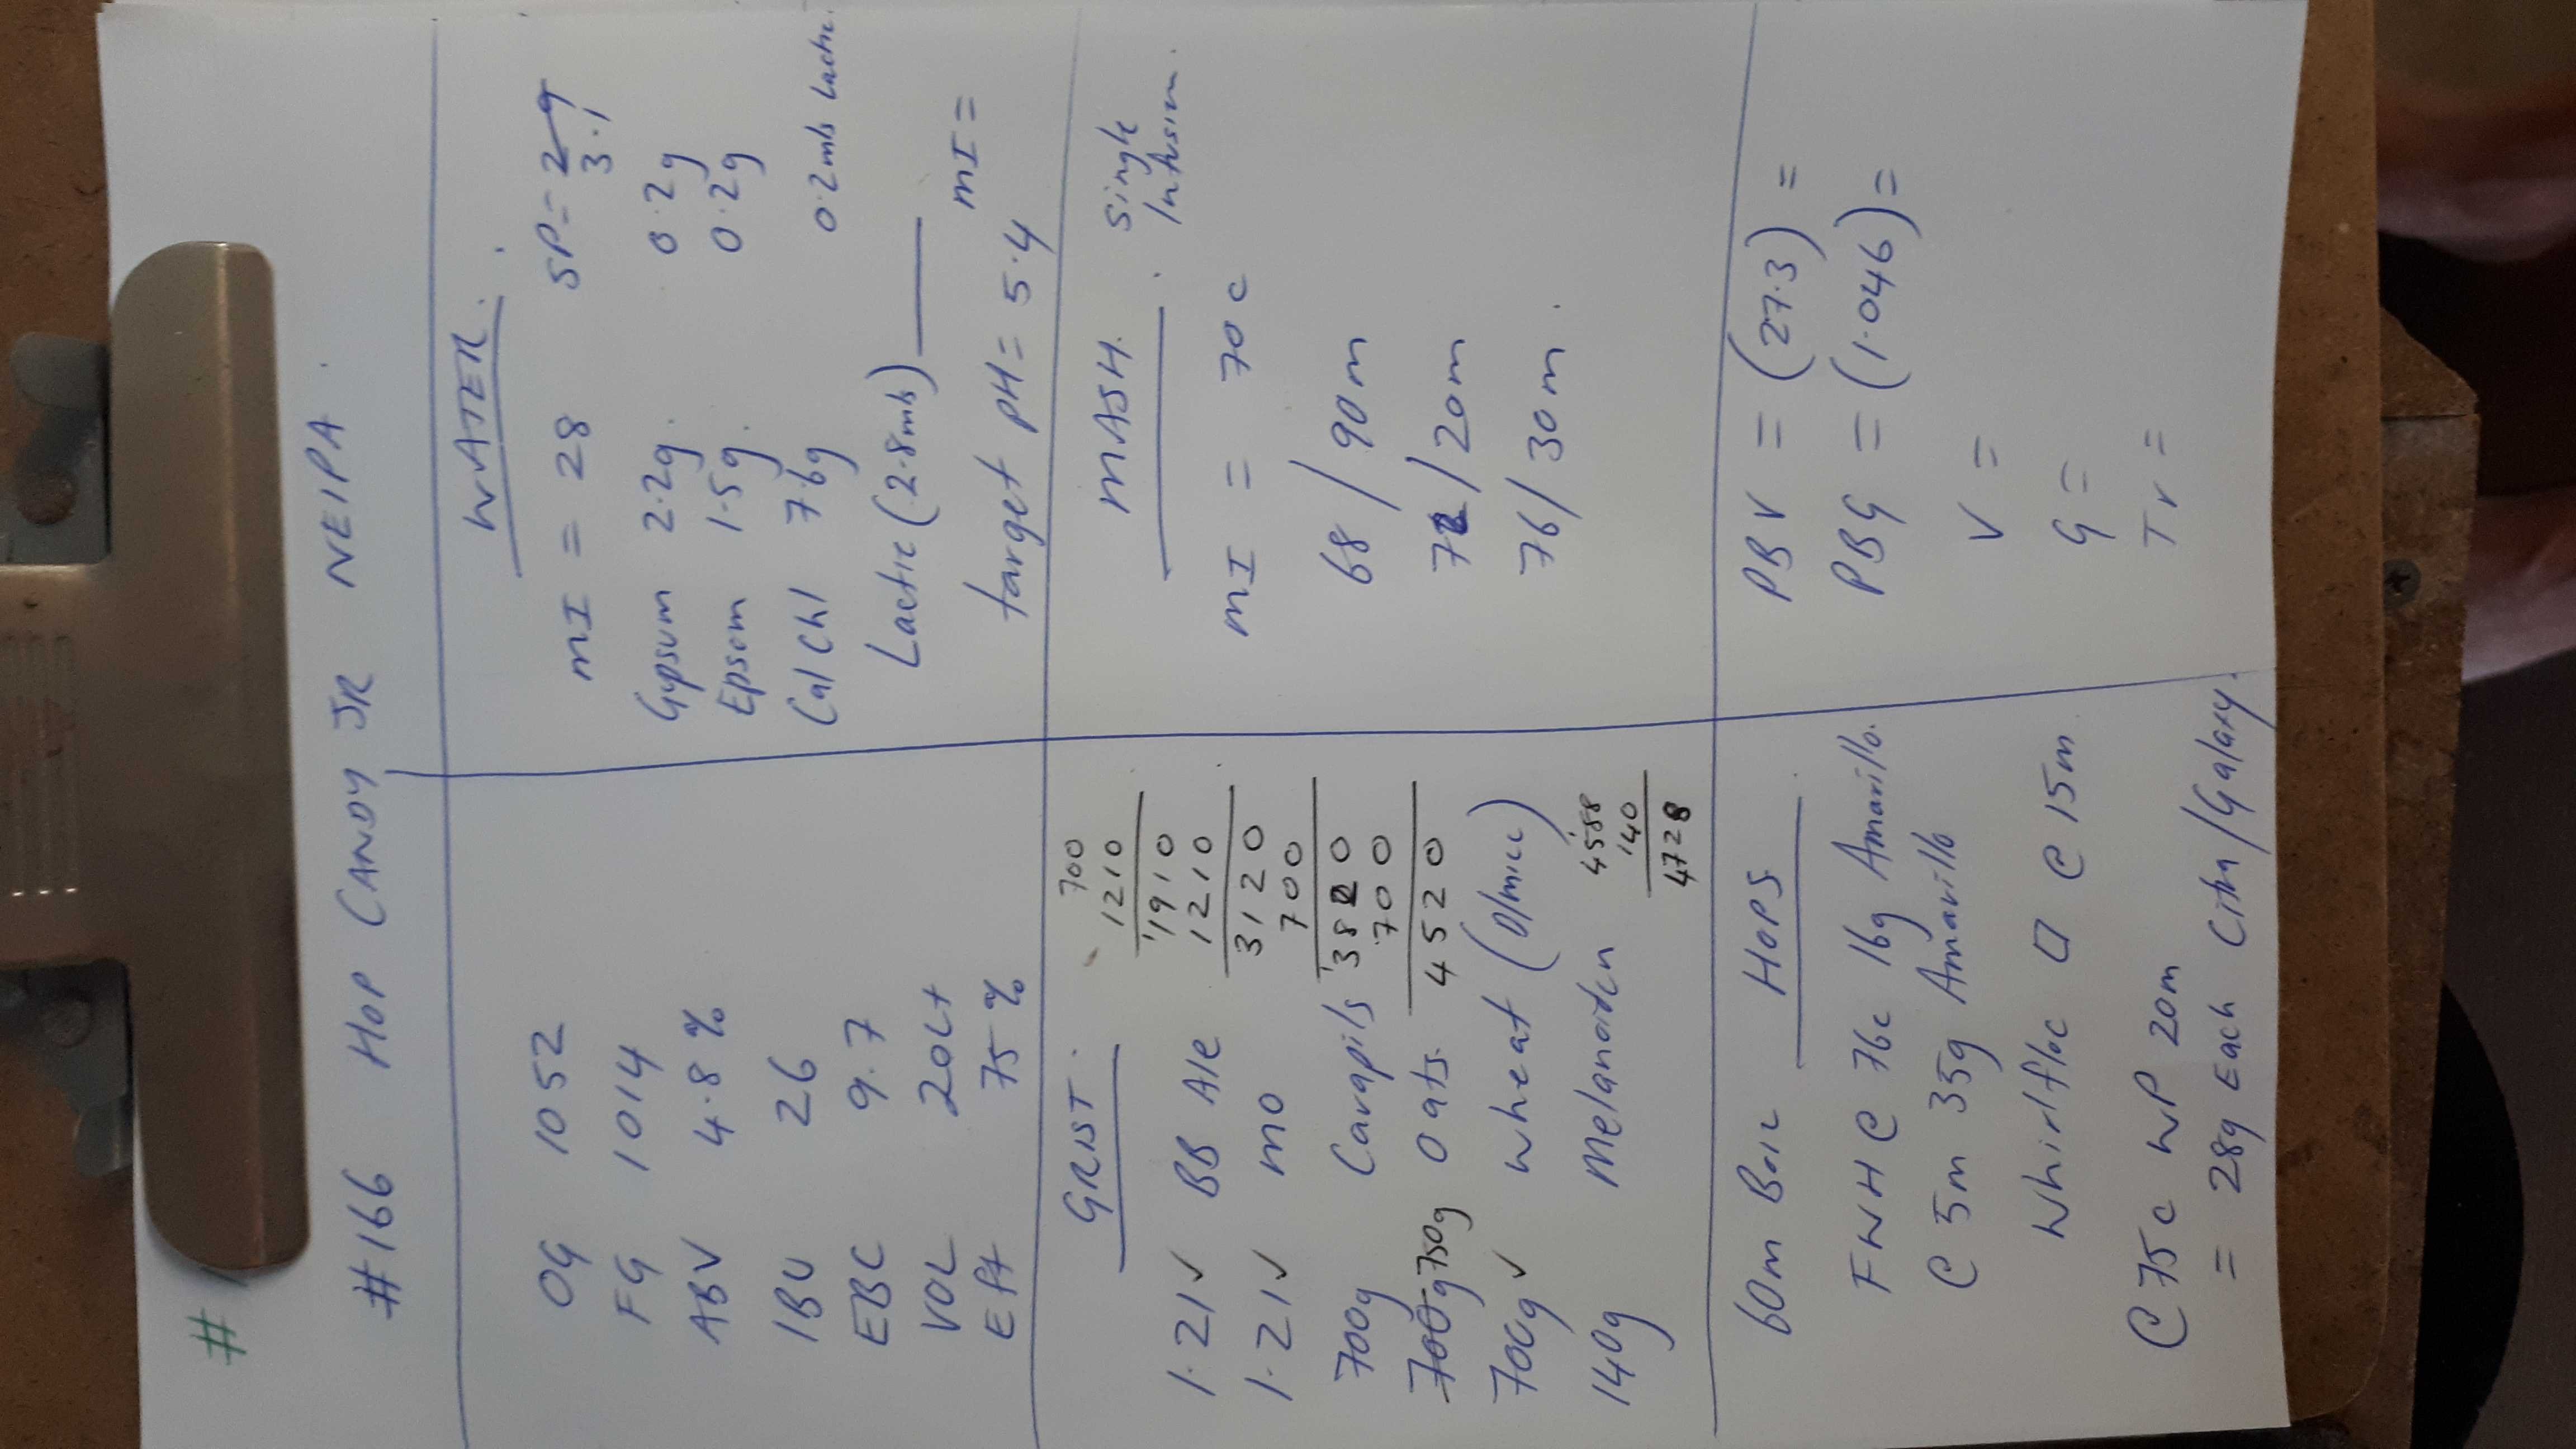 #
#166 HOP CANDY JR NEIPA.
OG 1052
FG 1014
ABV 4.8%
IBU 26
EBC 9.7
VOL 20Lt
Eff 75%
WATER.
MI = 28 SP = 29
3.1
Gypsum 2.2g. 0.2g
Epsom 1.5g. 0.2g
Cal Chl 7.6g
0.2mls Lactic.
Lactic (2.8mls)
target pH = 5.4 MI =
GRIST.
1.21 ✓ BB Ale
1.21 ✓ MO
700g Carapils
700g 750g Oats.
700g ✓ Wheat (D/Mill)
140g Melanoiden
700
1210
1910
1210
3120
700
3820
700
4520
4588
140
4728
MASH. Single
Infusion.
MI = 70c
68 / 90m
72 / 20m
76 / 30m.
60m Boil HOPS.
FWH @ 76c 16g Amarillo.
@ 5m 35g Amarillo
Whirlfloc @ 15m
@ 75c WP 20m
= 28g Each Citra/Galaxy.
PBV = (27.3) =
PBG = (1.046) =
V =
G =
Tr =